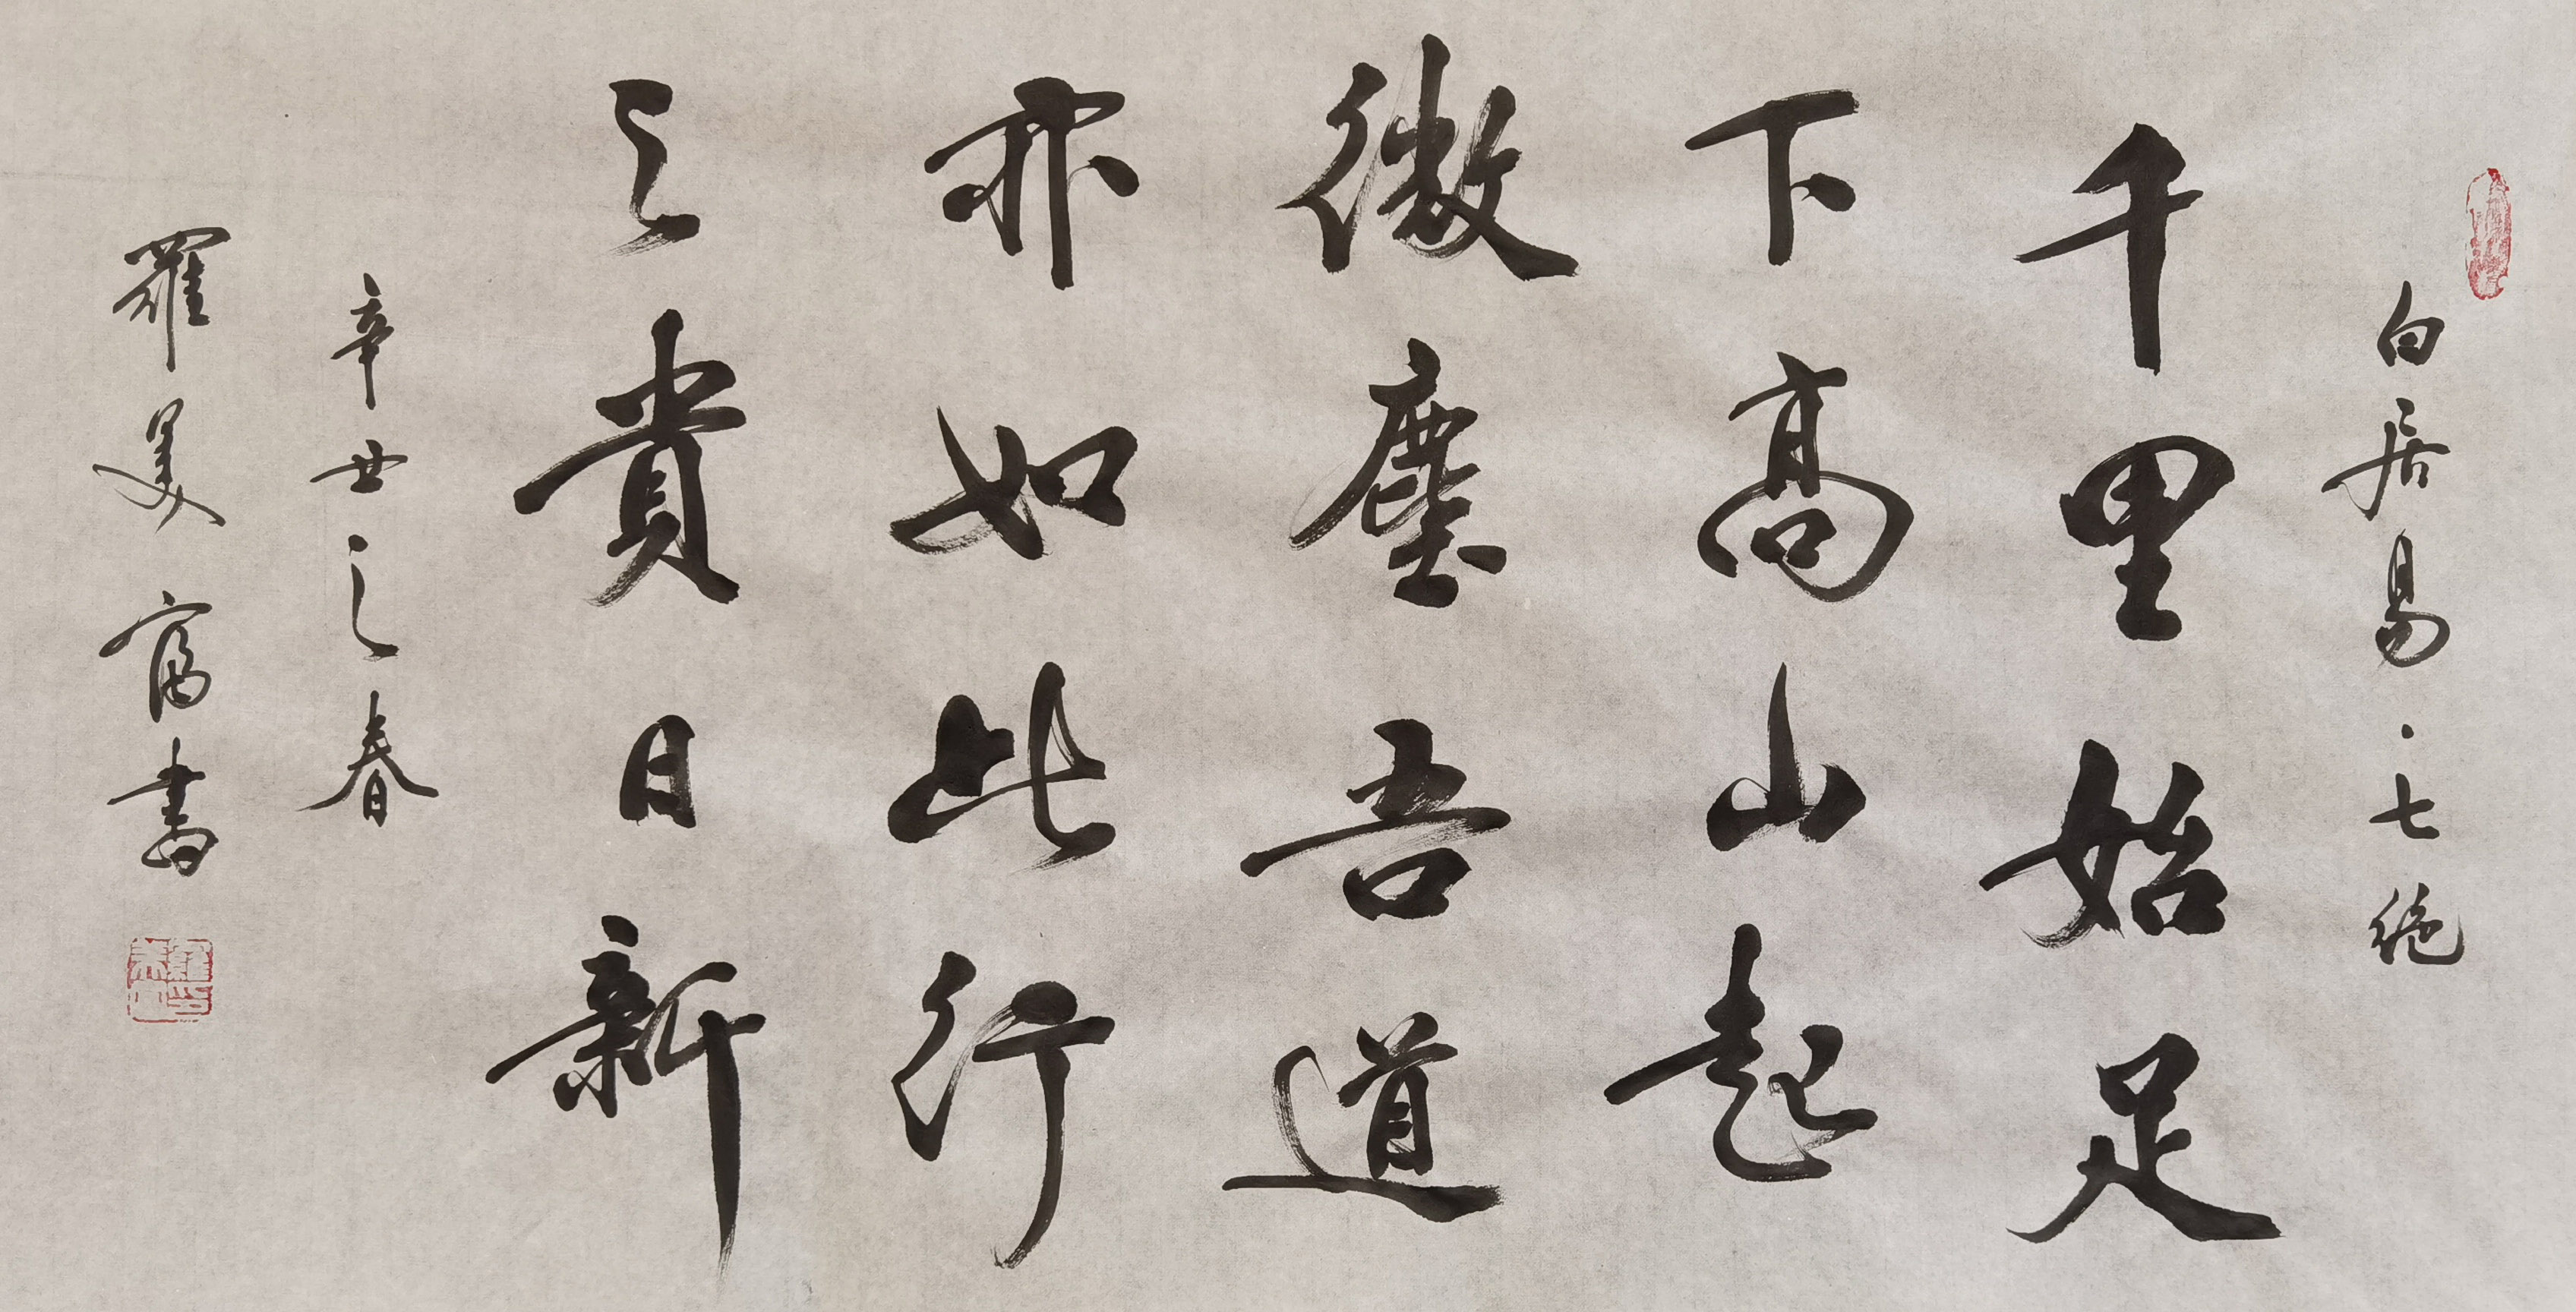 白居易·七絕
千里始足
下高山起
微塵吾道
亦如此行
之貴日新
辛丑之春
羅美富書